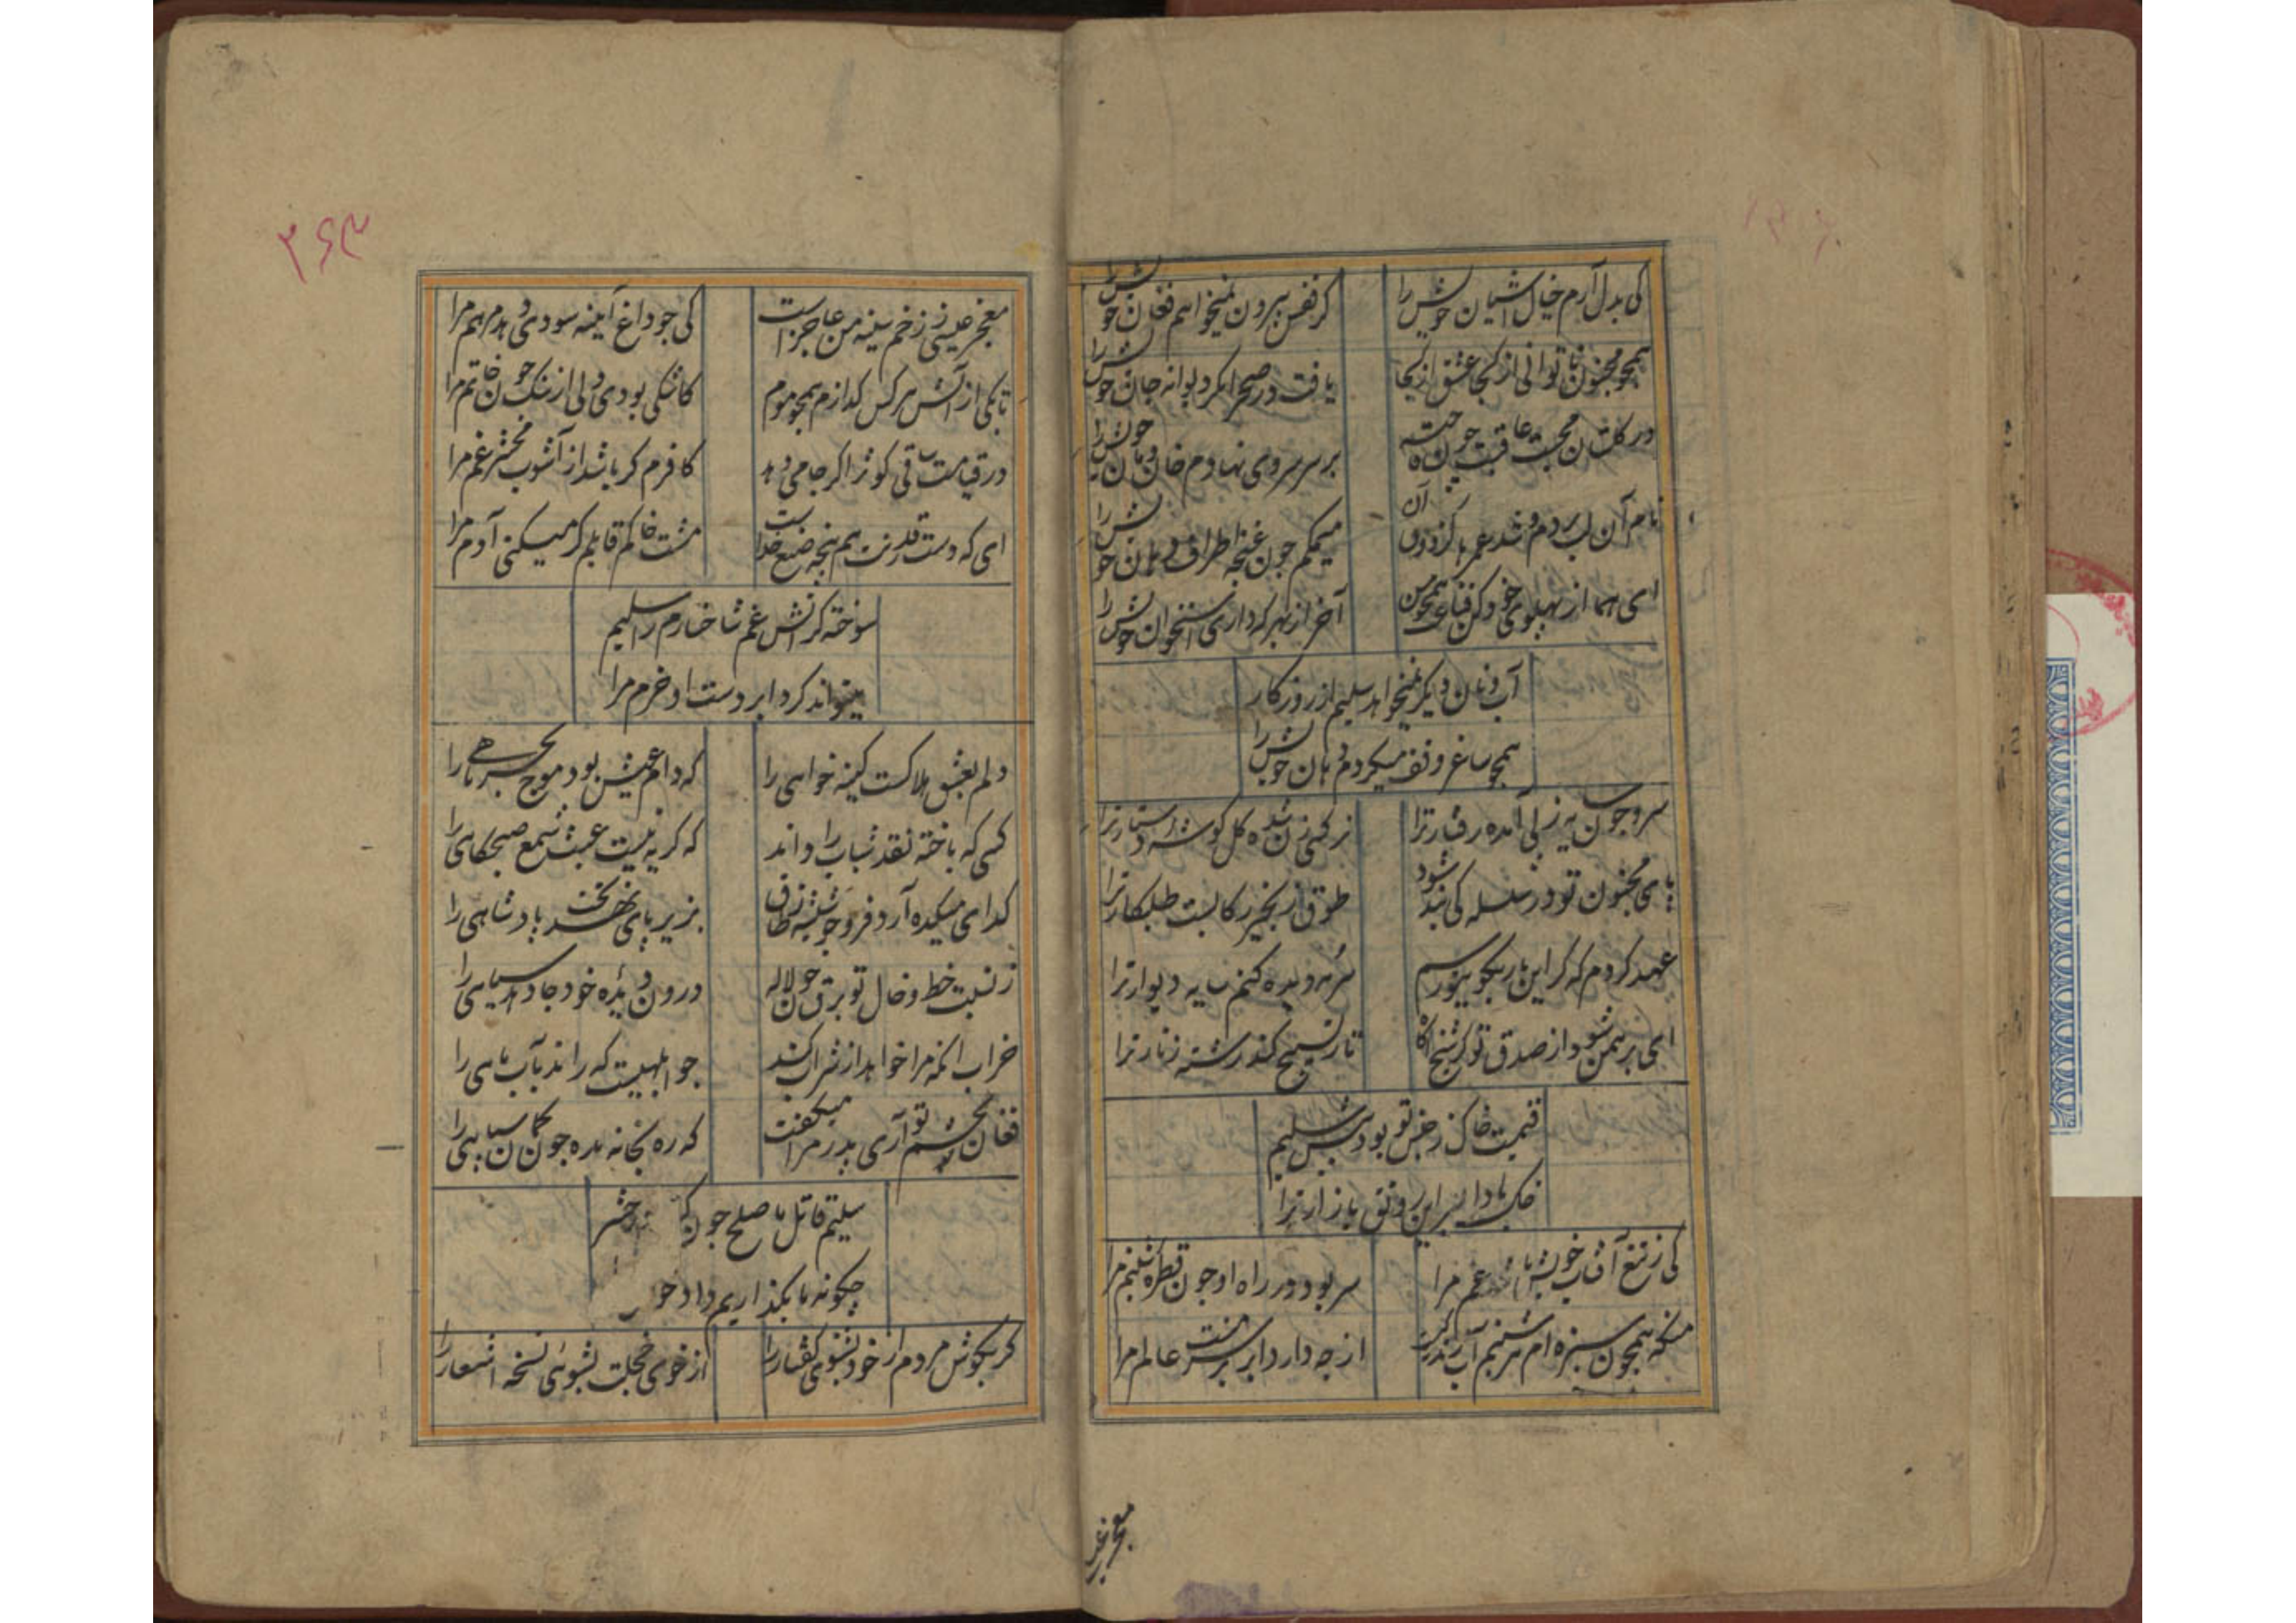 کی بدل آرم خیال آشیان خویش را
کز قفس بیرون نمیخواهم فغان خویش را
همچو مجنون ناتوانی از کجا عشق از کجا
یافت در صحرا مکر دیوانه جان خویش را
در کلستان محبت عاقبت چون فاخته
بر سر سروی نهادم خان و مان خویش را
نام آن لب بردم و شد عمرها کز ذوق آن
میمکم چون غنچه اطراف دهان خویش را
ای هما از پهلوی خود کن قناعت همچو من
آخر از بهر که داری استخوان خویش را
آب و نان دیکر نمیخواهد سلیم از روزکار
همچو ساغر وقف می کردم دهان خویش را
سرو چون سایه ز پی آمده رفتار ترا
نرکس زن شده کل کوشه دستار ترا
پای مجنون تو در سلسله کی بند شود
طوق زنجیر رکابست طلبکار ترا
عهد کردم که کر این بار بکویت برسم
سرمه دیده کنم سایه دیوار ترا
ای برهمن شود از صدق تو کر شیخ آکاه
تار تسبیح کند رشته زنار ترا
قیمت خاک ز جنس تو بود بیش سلیم
خاک بادا بسر این رونق بازار ترا
کی ز تیغ آفتاب خویش باشد غم مرا
سر بود در راه او چون قطره شبنم مرا
منکه همچون سبزه ام شبنم آب زندکیست
از چه دارد ابر بر سر منت عالم مرا
معجز عیسی
۲۶۳
معجز عیسی ز زخم سینه من عاجز است
کی چو داغ آینه سودی دهد مرهم مرا
تا بکی از آتش هر کس کدازم همچو موم
کاشکی بودی دلی از سنک چون خاتم مرا
در قیامت ساقی کوثر اکر جامی دهد
کافرم کر باشد از آشوب محشر غم مرا
ای که دست قدرتت هم پنجه صنع خداست
مشت خاکم قابلم کر میکنی آدم مرا
سوخته کر آتش غم شاخسارم را سلیم
میتواند کرد ابر دست او خرم مرا
دلم بعشق هلاکست کینه خواهی را
که دام عیش بود موج بحر ماهی را
کسی که باخته نقد شباب را داند
که کریه نیست عبث شمع صبحکاهی را
کدای میکده آرد فرو چو شیشه ز طاق
بزیر پای نهد تخت پادشاهی را
ز نسبت خط و خال تو برق چون لاله
درون دیده خود جا دهد سیاهی را
خراب آنکه مرا خواهد از شراب کند
چو ابلهیست که راند بآب ماهی را
فغان ز چشم تو آری پدر مرا میکفت
که ره بخانه مده چون کمان سپاهی را
سلیم قاتل ما صلح جو حشر
چکونه ما بکذاریم داد خو
کر بکوش مردم از خود بشنوی کفتار را
از خوی خجلت بشوئی نسخه اشعار را